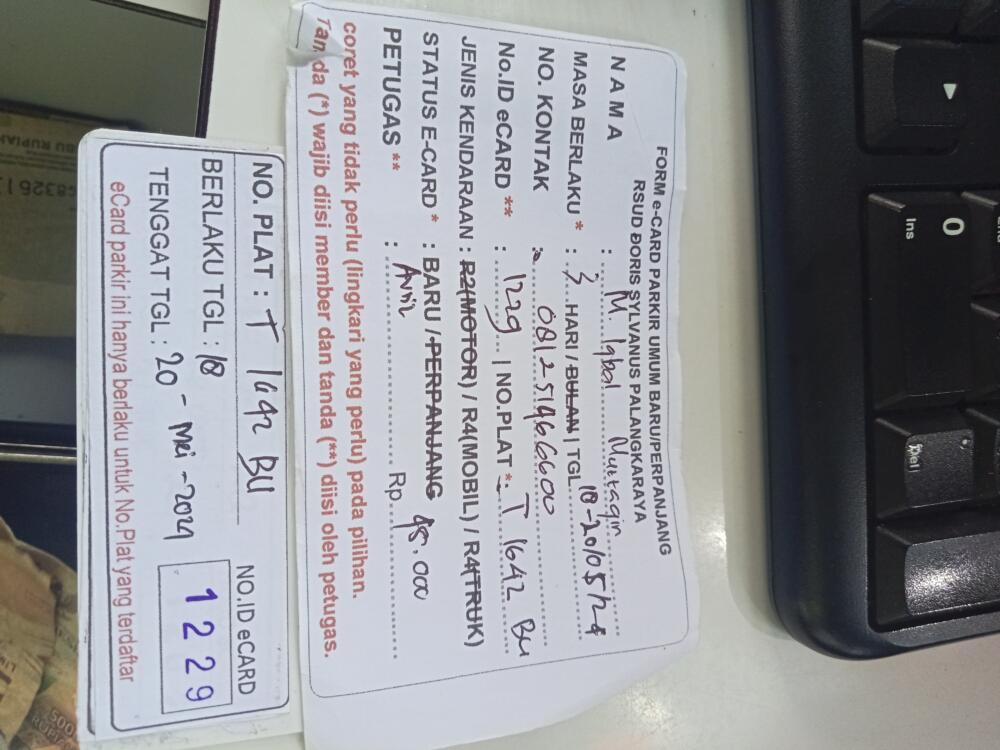 FORM e-CARD PARKIR UMUM BARU/PERPANJANG
RSUD DORIS SYLVANUS PALANGKARAYA
N A M A : M. Iqbal Muttaqin
MASA BERLAKU * : 3 HARI / BULAN | TGL 18-20/05/24
NO. KONTAK : 081251966600
No.ID eCARD ** : 1229 | NO.PLAT * : T 1642 BU
JENIS KENDARAAN : R2(MOTOR) / R4(MOBIL) / R4(TRUK)
STATUS E-CARD * : BARU / PERPANJANG
PETUGAS ** : Amir Rp 45.000
coret yang tidak perlu (lingkari yang perlu) pada pilihan.
Tanda (*) wajib diisi member dan tanda (**) diisi oleh petugas.
NO. PLAT : T 1642 BU
BERLAKU TGL : 18
TENGGAT TGL : 20 - Mei - 2024
NO.ID eCARD
1229
eCard parkir ini hanya berlaku untuk No.Plat yang terdaftar
0
Ins
Del